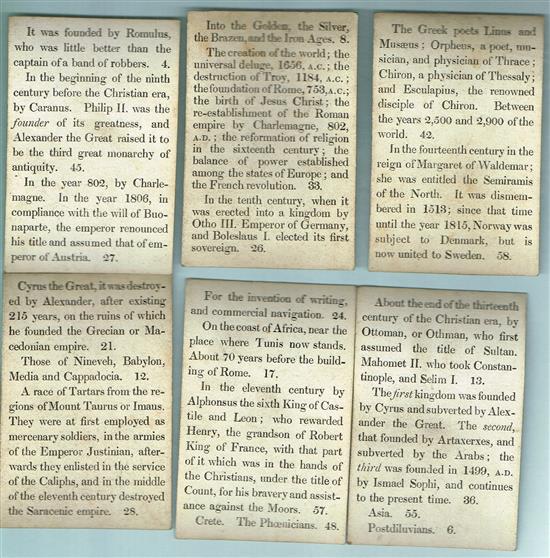 It was founded by Romulus,
who was little better than the
captain of a band of robbers. 4.
In the beginning of the ninth
century before the Christian era,
by Caranus. Philip II. was the
founder of its greatness, and
Alexander the Great raised it to
be the third great monarchy of
antiquity. 45.
In the year 802, by Charle-
magne. In the year 1806, in
compliance with the will of Buo-
naparte, the emperor renounced
his title and assumed that of em-
peror of Austria. 27.
Into the Golden, the Silver,
the Brazen, and the Iron Ages. 8.
The creation of the world; the
universal deluge, 1656, A.C.; the
destruction of Troy, 1184, A.C.;
the foundation of Rome, 753, A.C.;
the birth of Jesus Christ; the
re-establishment of the Roman
empire by Charlemagne, 802,
A.D.; the reformation of religion
in the sixteenth century; the
balance of power established
among the states of Europe; and
the French revolution. 33.
In the tenth century, when it
was erected into a kingdom by
Otho III. Emperor of Germany,
and Boleslaus I. elected its first
sovereign. 26.
The Greek poets Linus and
Musæus; Orpheus, a poet, mu-
sician, and physician of Thrace;
Chiron, a physician of Thessaly;
and Esculapius, the renowned
disciple of Chiron. Between
the years 2,500 and 2,900 of the
world. 42.
In the fourteenth century in the
reign of Margaret of Waldemar;
she was entitled the Semiramis
of the North. It was dismem-
bered in 1513; since that time
until the year 1815, Norway was
subject to Denmark, but is
now united to Sweden. 58.
Cyrus the Great, it was destroy-
ed by Alexander, after existing
215 years, on the ruins of which
he founded the Grecian or Ma-
cedonian empire. 21.
Those of Nineveh, Babylon,
Media and Cappadocia. 12.
A race of Tartars from the re-
gions of Mount Taurus or Imaus.
They were at first employed as
mercenary soldiers, in the armies
of the Emperor Justinian, after-
wards they enlisted in the service
of the Caliphs, and in the middle
of the eleventh century destroyed
the Saracenic empire. 28.
For the invention of writing,
and commercial navigation. 24.
On the coast of Africa, near the
place where Tunis now stands.
About 70 years before the build-
ing of Rome. 17.
In the eleventh century by
Alphonsus the sixth King of Cas-
tile and Leon; who rewarded
Henry, the grandson of Robert
King of France, with that part
of it which was in the hands of
the Christians, under the title of
Count, for his bravery and assist-
ance against the Moors. 57.
Crete. The Phœnicians. 48.
About the end of the thirteenth
century of the Christian era, by
Ottoman, or Othman, who first
assumed the title of Sultan.
Mahomet II. who took Constan-
tinople, and Selim I. 13.
The first kingdom was founded
by Cyrus and subverted by Alex-
ander the Great. The second,
that founded by Artaxerxes, and
subverted by the Arabs; the
third was founded in 1499, A.D.
by Ismael Sophi, and continues
to the present time. 36.
Asia. 55.
Postdiluvians. 6.